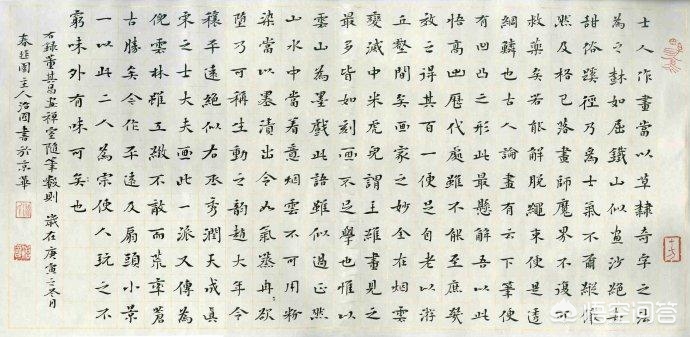 士人作畫當以草隸奇字之法
為之樹如屈鐵山似畫沙絕去
甜俗蹊徑乃為士氣不爾縱儼
然及格已落畫師魔界不復可
救藥矣若能解脫繩束便是透
網鱗也古人論畫有云下筆便
有凹凸之形此最懸解吾以此
悟高出歷代處雖不能至庶幾
效之得其百一便足自老以游
丘壑間矣画家之妙全在烟雲
變滅中米虎兒謂王維畫見之
最多皆如刻画不足學也惟以
雲山為墨戲此語雖似過正然
山水中當着意烟雲不可用粉
染當以墨漬出令如氣蒸冉冉欲
墮乃可稱生動之韻趙大年令
穰平遠絕似右丞秀潤天成真
宋之士大夫画此一派又傳為
倪雲林雖工緻不敵而荒率蒼
古勝矣今作平遠及扇頭小景
一以此二人為宗使人玩之不
窮味外有味可矣也
右錄董其昌畫禪室隨筆數則 歲在庚寅之冬月
春園主人治国書於京華
十方
悟空问答